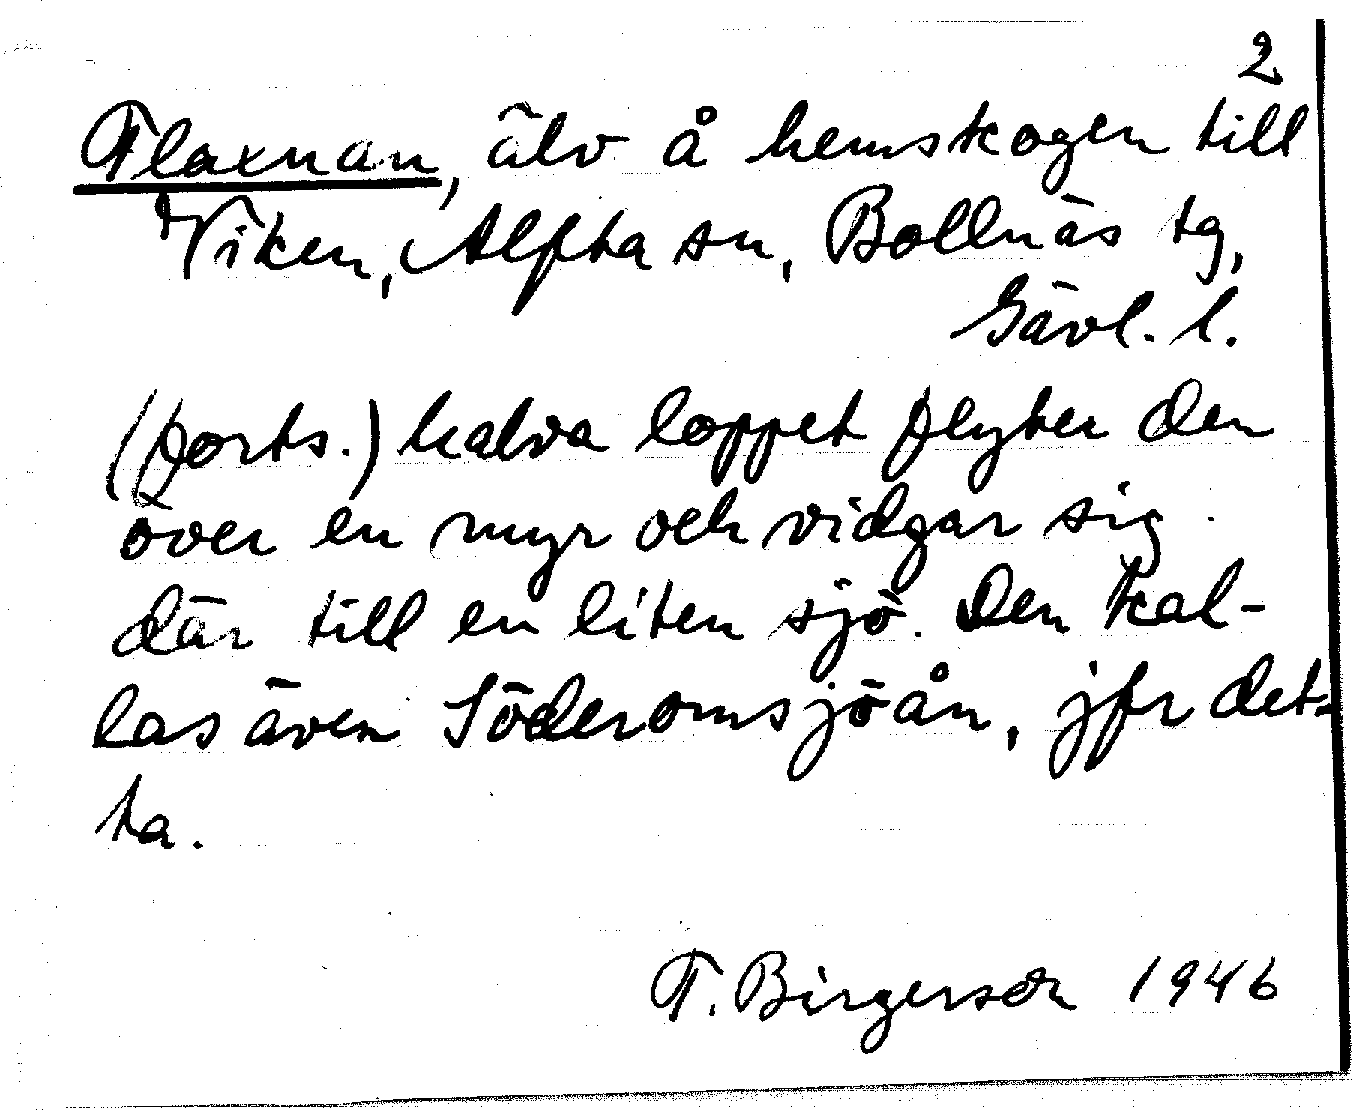 2
Flaxnan, älv å hemskogen till
Viken, Alfta sn, Bollnäs tg,
Gävl. l.
(forts.) halva loppet flyter den
över en myr och vidgar sig
där till en liten sjö. Den kal-
las även Söderomsjöån, jfr det-
ta.
F. Birgerson 1946